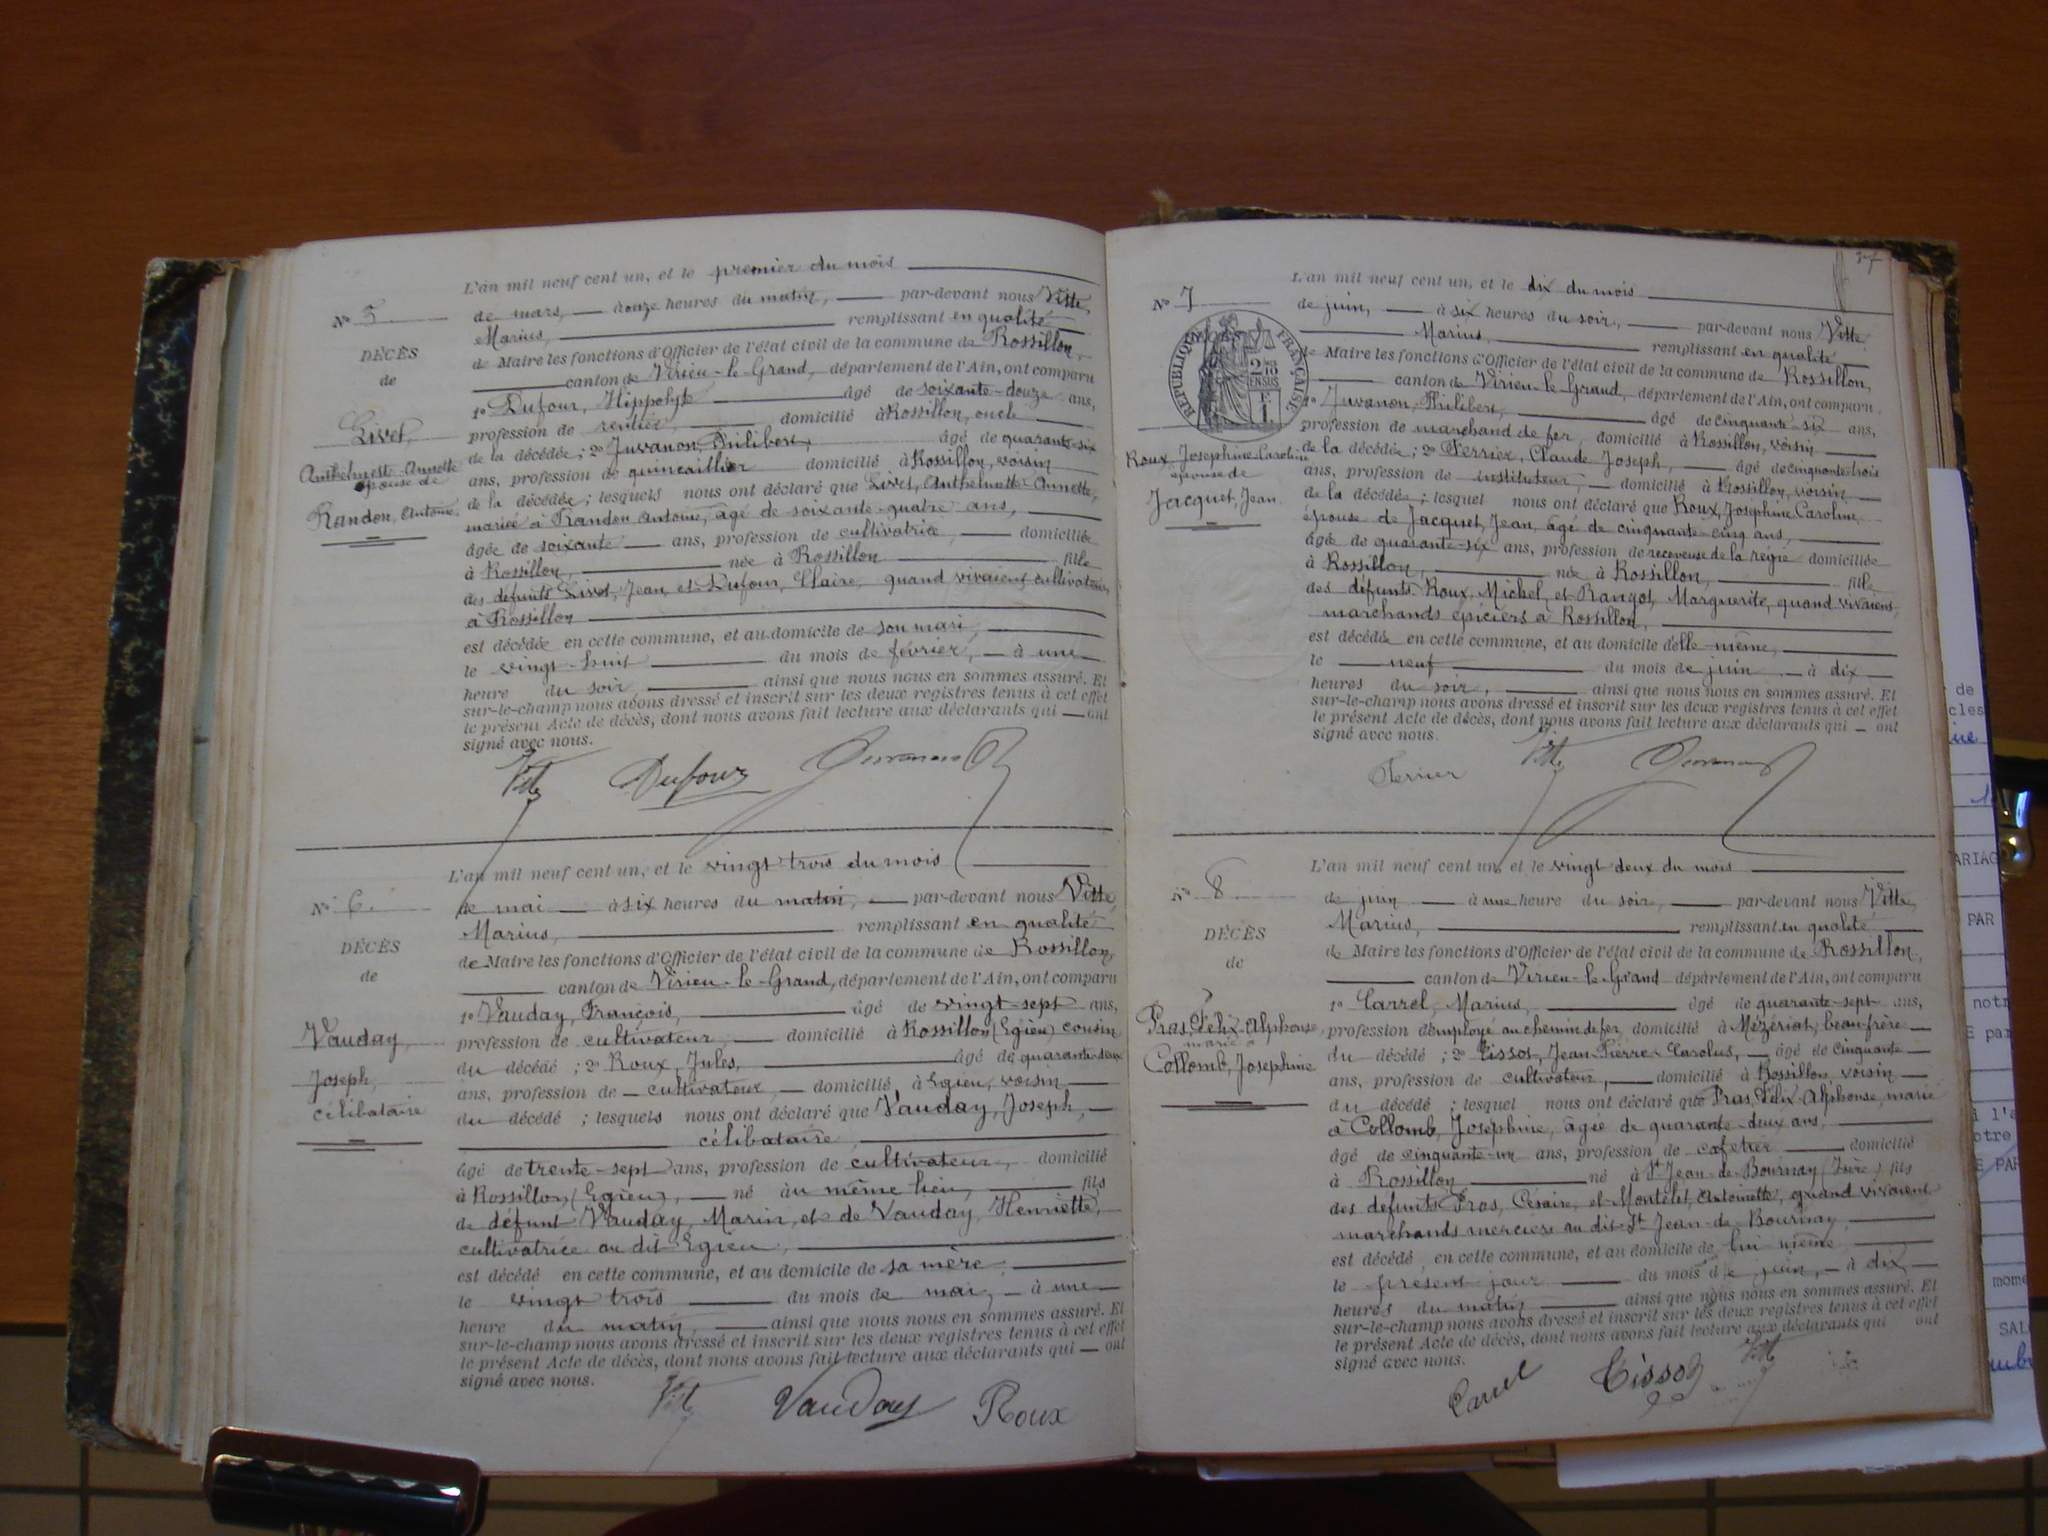 L'an mil neuf cent un, et le premier du mois
No 5
de mars, à onze heures du matin, par-devant nous Vitte,
Marius, remplissant en qualité
DÉCÈS
de Maire les fonctions d'Officier de l'état civil de la commune de Rossillon,
de
canton de Virieu-le-Grand, département de l'Ain, ont comparu
1o Dufour, Hippolyte âgé de soixante-douze ans,
Livet,
profession de rentier, domicilié à Rossillon, oncle
de la décédée; 2o Juvanon, Philibert, âgé de quarante-six
Anthelmette-Annette
épouse de
ans, profession de quincaillier domicilié à Rossillon, voisin
Randon, Antoine
de la décédée; lesquels nous ont déclaré que Livet, Anthelmette-Annette,
mariée à Randon Antoine, âgé de soixante-quatre ans,
âgée de soixante ans, profession de cultivatrice, domiciliée
à Rossillon, née à Rossillon fille
des défunts Livet, Jean, et Dufour, Claire, quand vivaient cultivateurs,
à Rossillon
est décédée en cette commune, et au domicile de son mari,
le vingt-huit du mois de février, à une
heure du soir, ainsi que nous nous en sommes assuré. Et
sur-le-champ nous avons dressé et inscrit sur les deux registres tenus à cet effet
le présent Acte de décès, dont nous avons fait lecture aux déclarants qui ont
signé avec nous.
Vitte Dufour Juvanon
L'an mil neuf cent un, et le vingt trois du mois
No 6
de mai à six heures du matin, par-devant nous Vitte,
Marius, remplissant en qualité
DÉCÈS
de Maire les fonctions d'Officier de l'état civil de la commune de Rossillon,
de
canton de Virieu-le-Grand, département de l'Ain, ont comparu
1o Vauday, François, âgé de vingt-sept ans,
Vauday,
profession de cultivateur, domicilié à Rossillon (Egieu) cousin
du décédé; 2o Roux, Jules, âgé de quarante-deux
Joseph,
ans, profession de cultivateur, domicilié à Egieu, voisin
célibataire
du décédé; lesquels nous ont déclaré que Vauday, Joseph,
célibataire,
âgé de trente-sept ans, profession de cultivateur, domicilié
à Rossillon (Egieu), né au même lieu, fils
de défunt Vauday, Marin, et de Vauday, Henriette,
cultivatrice au dit Egieu,
est décédé en cette commune, et au domicile de sa mère
le vingt trois du mois de mai, à une
heure du matin, ainsi que nous nous en sommes assuré. Et
sur-le-champ nous avons dressé et inscrit sur les deux registres tenus à cet effet
le présent Acte de décès, dont nous avons fait lecture aux déclarants qui ont
signé avec nous.
Vitte Vauday Roux
37
L'an mil neuf cent un, et le dix du mois
No 7
de juin, à six heures du soir, par-devant nous Vitte
Marius, remplissant en qualité
RÉPUBLIQUE FRANÇAISE
de Maire les fonctions d'Officier de l'état civil de la commune de Rossillon,
canton de Virieu-le-Grand, département de l'Ain, ont comparu
1o Juvanon, Philibert, âgé de cinquante-six ans,
profession de marchand de fer, domicilié à Rossillon, voisin
Roux, Josephine-Caroline
de la décédée; 2o Ferrier, Claude Joseph, âgé de cinquante-trois
épouse de
ans, profession de instituteur, domicilié à Rossillon, voisin
Jacquet, Jean
de la décédée; lesquel nous ont déclaré que Roux, Joséphine Caroline,
épouse de Jacquet, Jean, âgé de cinquante-cinq ans,
âgée de quarante-six ans, profession de receveuse de la régie domiciliée
à Rossillon, née à Rossillon, fille
des défunts Roux, Michel, et Rangot, Marguerite, quand vivaient
marchands épiciers à Rossillon,
est décédée en cette commune, et au domicile d'elle-même,
le neuf du mois de juin à dix
heures du soir, ainsi que nous nous en sommes assuré. Et
sur-le-champ nous avons dressé et inscrit sur les deux registres tenus à cet effet
le présent Acte de décès, dont nous avons fait lecture aux déclarants qui ont
signé avec nous.
Ferrier Vitte Juvanon
L'an mil neuf cent un, et le vingt deux du mois
No 8
de juin à une heure du soir, par-devant nous Vitte,
Marius, remplissant en qualité
DÉCÈS
de Maire les fonctions d'Officier de l'état civil de la commune de Rossillon,
de
canton de Virieu-le-Grand département de l'Ain, ont comparu
1o Carrel, Marius, âgé de quarante-sept ans,
Pras, Félix-Alphonse,
profession d'employé au chemin de fer, domicilié à Mézériat, beau-frère
marié à
du décédé; 2o Tissot, Jean-Pierre-Carolus, âgé de cinquante
Collomb, Josephine
ans, profession de cultivateur, domicilié à Rossillon voisin
du décédé; lesquel nous ont déclaré que Pras, Félix-Alphonse, marié
à Collomb, Joséphine, âgée de quarante-deux ans,
âgé de cinquante-un ans, profession de cafetier domicilié
à Rossillon né à St Jean-de-Bournay (Isère) fils
des défunts Pras, Césaire, et Montélet, Antoinette, quand vivaient
marchands merciers au dit St Jean-de-Bournay,
est décédé en cette commune, et au domicile de lui même
le présent jour du mois de juin, à dix
heures du matin ainsi que nous nous en sommes assuré. Et
sur-le-champ nous avons dressé et inscrit sur les deux registres tenus à cet effet
le présent Acte de décès, dont nous avons fait lecture aux déclarants qui ont
signé avec nous.
Carrel Tissot Vitte